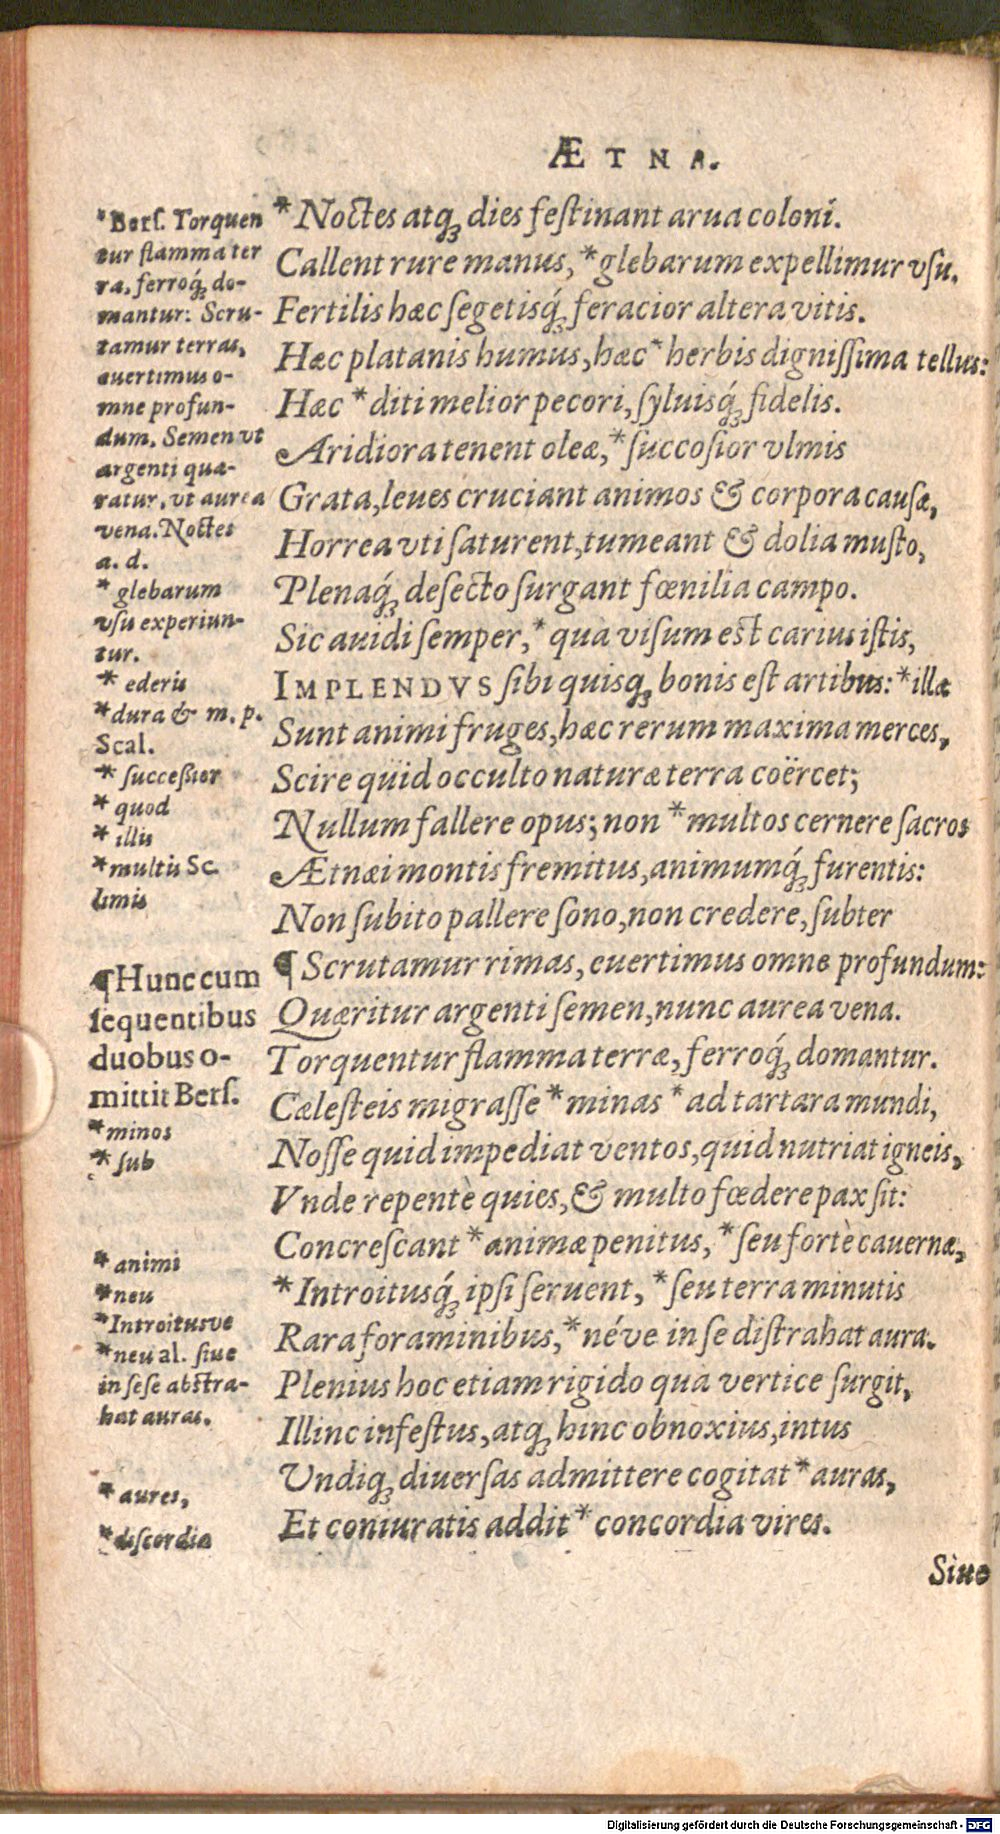 ÆTNA.
*Noctes atq́; dies festinant arua coloni.
Callent rure manus, *glebarum expellimur vsu.
Fertilis hæc segetisq́; feracior altera vitis.
Hæc platanis humus, hæc *herbis dignissima tellus:
Hæc *diti melior pecori, syluisq́; fidelis.
Aridiora tenent oleæ, *succosior vlmis
Grata, leues cruciant animos & corpora causæ,
Horrea vti saturent, tumeant & dolia musto,
Plenaq́; desecto surgant fœnilia campo.
Sic auidi semper, *qua visum est carius istis,
IMPLENDVS sibi quisq; bonis est artibus: *illæ
Sunt animi fruges, hæc rerum maxima merces,
Scire quid occulto naturæ terra coërcet;
Nullum fallere opus; non *multos cernere sacros
Ætnæi montis fremitus, animumq́; furentis:
Non subito pallere sono, non credere, subter
¶Scrutamur rimas, euertimus omne profundum:
Quæritur argenti semen, nunc aurea vena.
Torquentur flamma terræ, ferroq́; domantur.
Cælesteis migrasse *minas *ad tartara mundi,
Nosse quid impediat ventos, quid nutriat igneis,
Vnde repentè quies, & multo fœdere pax sit:
Concrescant *animæ penitus, *seu fortè cauernæ,
*Introitusq́; ipsi seruent, *seu terra minutis
Rara foraminibus, *néve in se distrahat aura.
Plenius hoc etiam rigido qua vertice surgit,
Illinc infestus, atq; hinc obnoxius, intus
Undiq; diuersas admittere cogitat *auras,
Et coniuratis addit *concordia vires.
Siue
*Bers. Torquen
tur flamma ter
ra, ferroq́; do-
mantur: Scru-
tamur terras,
euertimus o-
mne profun-
dum. Semen vt
argenti quæ-
ratur, vt aurea
vena. Noctes
a. d.
*glebarum
vsu experiun-
tur.
*ederis
*dura & m. p.
Scal.
*successior
*quod
*illis
*multis Sc.
limis
¶Hunc cum
sequentibus
duobus o-
mittit Bers.
*minos
*sub
*animi
*neu
*Introitusve
*neu al. siue
in sese abstra-
hat auras.
*aures,
*discordia
Digitalisierung gefördert durch die Deutsche Forschungsgemeinschaft - DFG